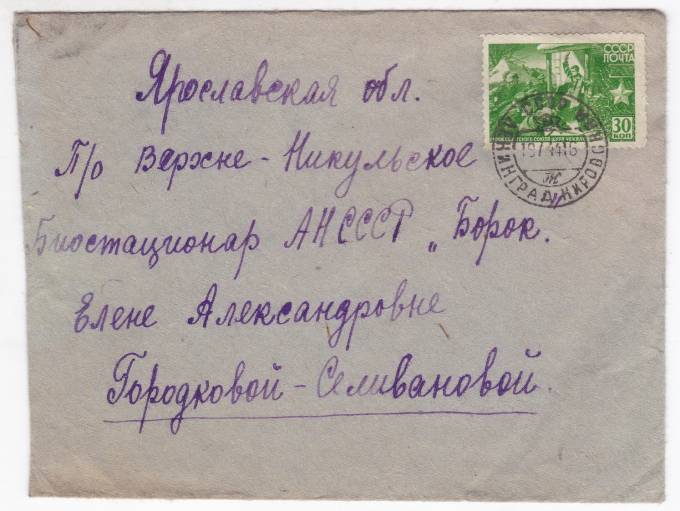 Ярославская обл.
П/о Верхне-Никульское
Биостационар АН СССР „Борок.
Елене Александровне
Городковой-Селивановой.
СССР
ПОЧТА
30
КОП
СОЮЗА ШУРА ЧЕКАЛИН
СССР